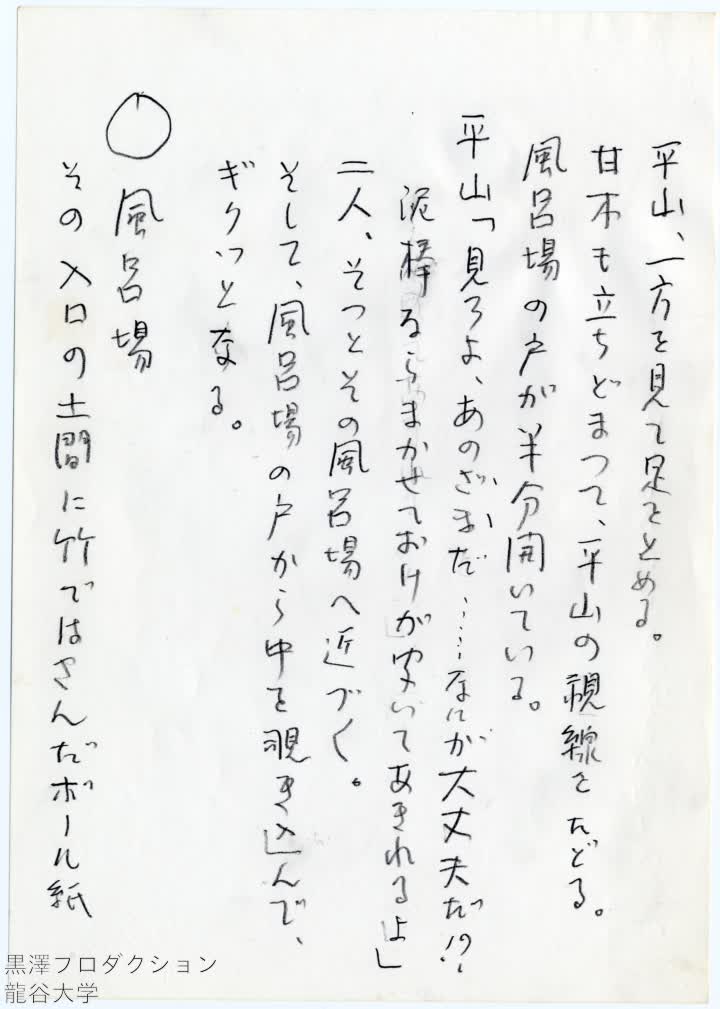 平山、一方を見て足をとめる。
甘木も立ちどまつて、平山の視線をたどる。
風呂場の戸が半分開いている。
平山「見ろよ、あのざまだ……なにが大丈夫だ!?
泥棒ならまかせておけが聞いてあきれるよ」
二人、そつとその風呂場へ近づく。
そして、風呂場の戸から中を覗き込んで、
ギクッとなる。
○ 風呂場
その入口の土間に竹ではさんだボール紙
黒澤プロダクション
龍谷大学